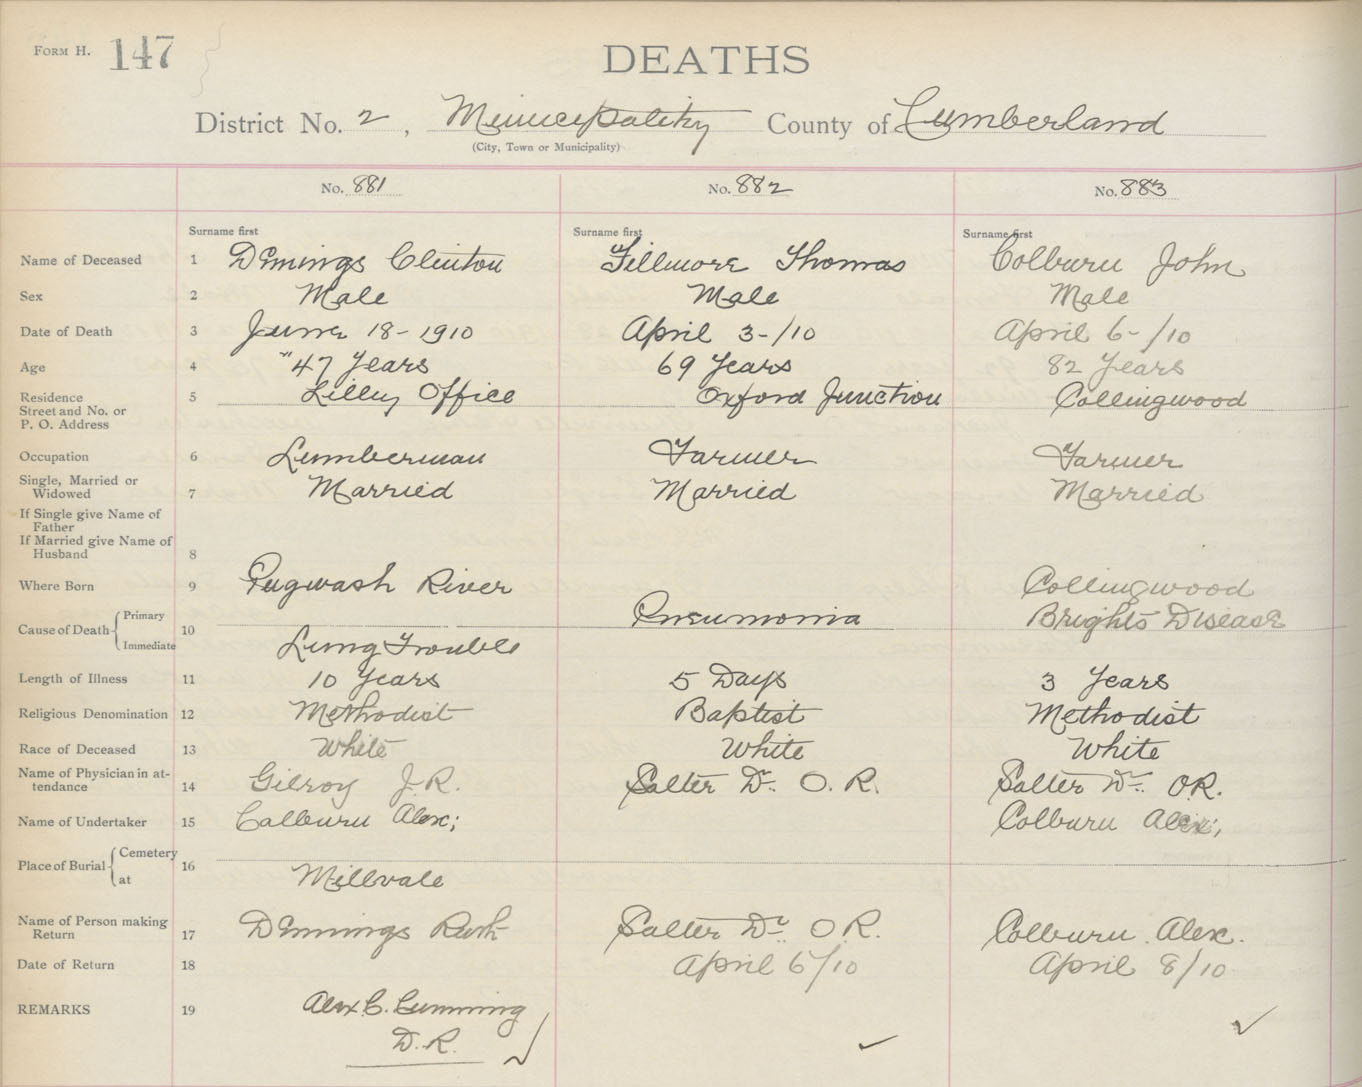 FORM H. 147
DEATHS
District No. 2, Municipality County of Cumberland
(City, Town or Municipality)
No. 881 No. 882 No. 883
Surname first Surname first Surname first
Name of Deceased 1 Demings Clinton Fillmore Thomas Colburn John
Sex 2 Male Male Male
Date of Death 3 June 18-1910 April 3-/10 April 6-/10
Age 4 "47 Years 69 Years 82 Years
Residence
Street and No. or
P. O. Address 5 Lilley Office Oxford Junction Collingwood
Occupation 6 Lumberman Farmer Farmer
Single, Married or
Widowed 7 Married Married Married
If Single give Name of
Father
If Married give Name of
Husband 8
Where Born 9 Pugwash River Collingwood
Cause of Death Primary Pneumonia Brights Disease
10
Immediate Lung Trouble
Length of Illness 11 10 Years 5 Days 3 Years
Religious Denomination 12 Methodist Baptist Methodist
Race of Deceased 13 White White White
Name of Physician in at-
tendance 14 Gilroy J.R. Salter Dr. O. R. Salter Dr. O.R.
Name of Undertaker 15 Colburn Alex; Colburn Alex;
Place of Burial Cemetery
16
at Millvale
Name of Person making
Return 17 Demmings Salter Dr. O R. Colburn Alex.
Date of Return 18 April 6/10 April 8/10
REMARKS 19 Alex C. Cumming
D.R.